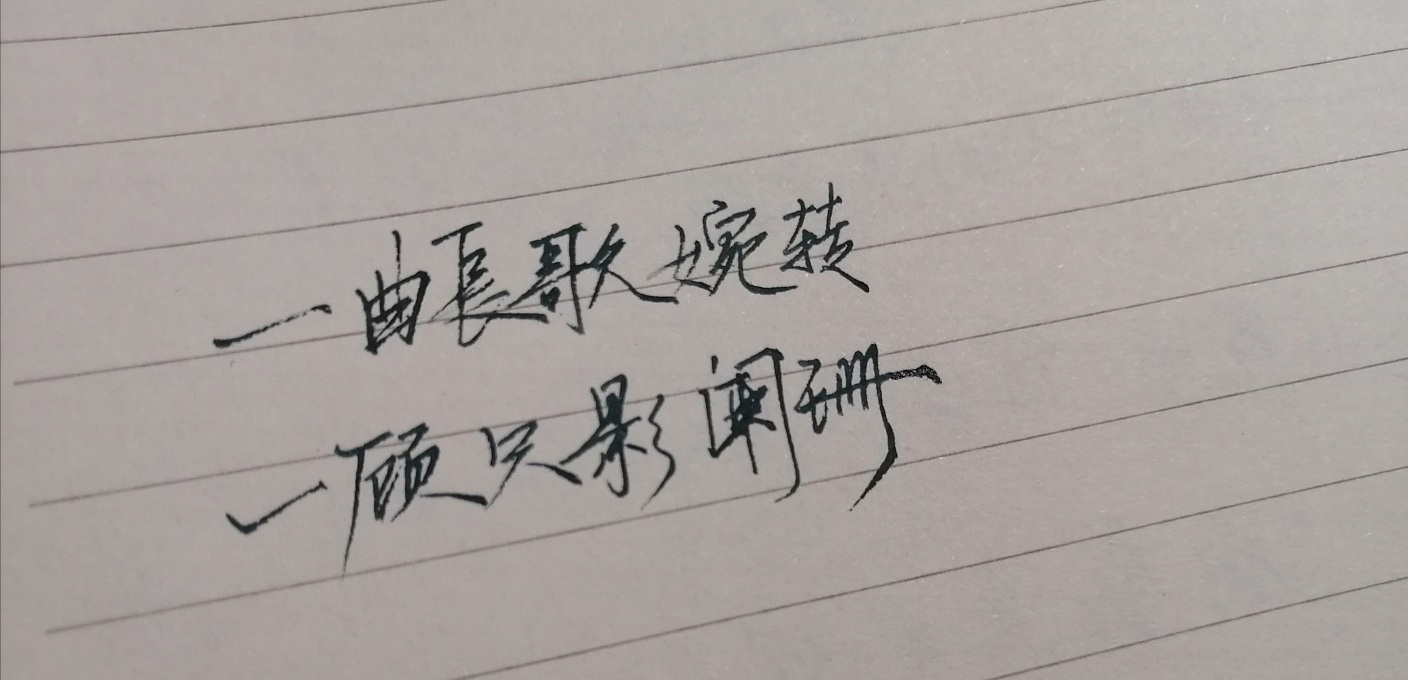 一曲長歌婉转
一顾只影阑珊